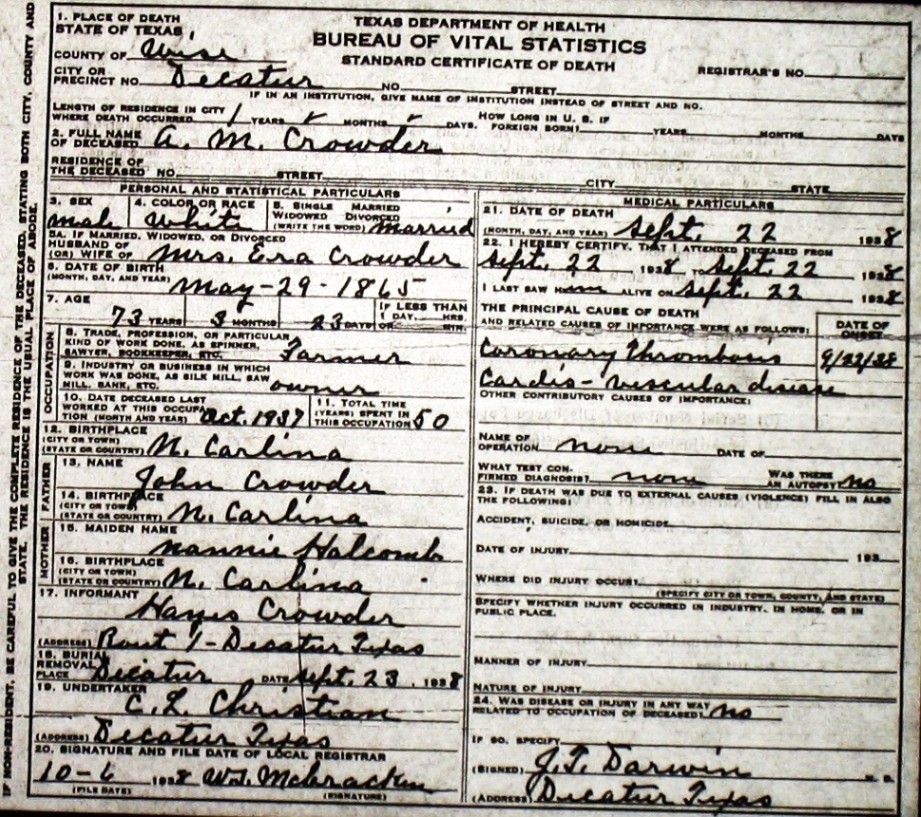 IF NON-RESIDENT, BE CAREFUL TO GIVE THE COMPLETE RESIDENCE OF THE DECEASED, STATING BOTH CITY, COUNTY AND
STATE. THE RESIDENCE IS THE USUAL PLACE OF ABODE.
TEXAS DEPARTMENT OF HEALTH
BUREAU OF VITAL STATISTICS
STANDARD CERTIFICATE OF DEATH
1. PLACE OF DEATH
STATE OF TEXAS
COUNTY OF Wise
REGISTRAR'S NO.
CITY OR
PRECINCT NO. Decatur NO. STREET
IF IN AN INSTITUTION, GIVE NAME OF INSTITUTION INSTEAD OF STREET AND NO.
LENGTH OF RESIDENCE IN CITY
WHERE DEATH OCCURRED 1 YEARS MONTHS DAYS. HOW LONG IN U. S. IF FOREIGN BORN? YEARS MONTHS DAYS
2. FULL NAME
OF DECEASED A. M. Crowder
RESIDENCE OF
THE DECEASED NO. STREET CITY STATE
PERSONAL AND STATISTICAL PARTICULARS
3. SEX 4. COLOR OR RACE 5. SINGLE MARRIED
WIDOWED DIVORCED
(WRITE THE WORD)
male White married
5A. IF MARRIED, WIDOWED, OR DIVORCED
HUSBAND OF
(OR) WIFE OF Mrs. Era Crowder
6. DATE OF BIRTH
(MONTH, DAY, AND YEAR) May-29-1865
7. AGE IF LESS THAN
1 DAY, HRS.
73 YEARS 3 MONTHS 23 DAYS OR MIN.
OCCUPATION
8. TRADE, PROFESSION, OR PARTICULAR
KIND OF WORK DONE, AS SPINNER,
SAWYER, BOOKKEEPER, ETC. Farmer
9. INDUSTRY OR BUSINESS IN WHICH
WORK WAS DONE, AS SILK MILL, SAW
MILL, BANK, ETC. owner
10. DATE DECEASED LAST
WORKED AT THIS OCCUPA
TION (MONTH AND YEAR) Oct. 1937
11. TOTAL TIME
(YEARS) SPENT IN
THIS OCCUPATION 50
12. BIRTHPLACE
(CITY OR TOWN)
(STATE OR COUNTRY) N. Carlina
FATHER
13. NAME
John Crowder
14. BIRTHPLACE
(CITY OR TOWN)
(STATE OR COUNTRY) N. Carlina
MOTHER
15. MAIDEN NAME
Nannie Halcomb
16. BIRTHPLACE
(CITY OR TOWN)
(STATE OR COUNTRY) N. Carlina
17. INFORMANT
Hayes Crowder
(ADDRESS) Rout 1-Decatur Texas
18. BURIAL
REMOVAL
PLACE Decatur DATE Sept. 23, 1938
19. UNDERTAKER
C. L. Christian
(ADDRESS) Decatur Texas
20. SIGNATURE AND FILE DATE OF LOCAL REGISTRAR
10-6 1938 W.T. McCracken
(FILE DATE) (SIGNATURE)
MEDICAL PARTICULARS
21. DATE OF DEATH
(MONTH, DAY, AND YEAR) Sept. 22 1938
22. I HEREBY CERTIFY, THAT I ATTENDED DECEASED FROM
Sept. 22 1938 TO Sept. 22 1938
I LAST SAW HIM ALIVE ON Sept. 22 1938
THE PRINCIPAL CAUSE OF DEATH
AND RELATED CAUSES OF IMPORTANCE WERE AS FOLLOWS: DATE OF
ONSET
Coronary Thrombosis 9/22/38
Cardio-vescular disease
OTHER CONTRIBUTORY CAUSES OF IMPORTANCE:
NAME OF
OPERATION none DATE OF
WHAT TEST CON-
FIRMED DIAGNOSIS? none WAS THERE
AN AUTOPSY? no
23. IF DEATH WAS DUE TO EXTERNAL CAUSES (VIOLENCE) FILL IN ALSO
THE FOLLOWING:
ACCIDENT, SUICIDE, OR HOMICIDE
DATE OF INJURY 193
WHERE DID INJURY OCCUR?
(SPECIFY CITY OR TOWN, COUNTY, AND STATE)
SPECIFY WHETHER INJURY OCCURRED IN INDUSTRY, IN HOME, OR IN
PUBLIC PLACE.
MANNER OF INJURY
NATURE OF INJURY
24. WAS DISEASE OR INJURY IN ANY WAY
RELATED TO OCCUPATION OF DECEASED? no
IF SO, SPECIFY
(SIGNED) J.T. Darwin M. D.
(ADDRESS) Decatur Texas